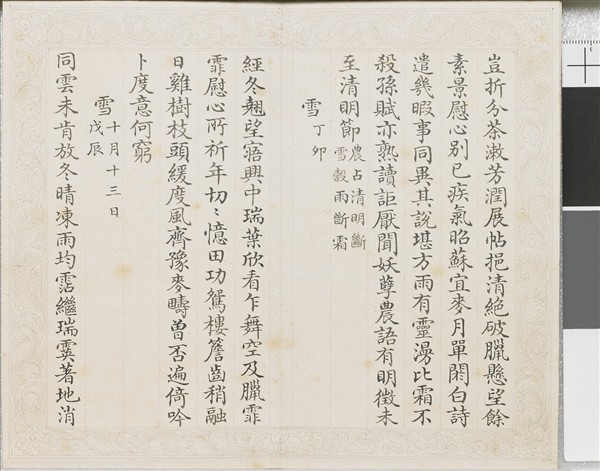 豈折分茶漱芳潤展帖挹清絕破臘懸望餘
素景慰心別已疾氣昭蘇宜麥月單閼白詩
遣幾暇事同異其說堪方雨有靈漫比霜不
殺孫賦亦熟讀詎厭聞妖孽農語有明徵未
至清明節農占清明斷
雪穀雨斷霜
雪丁卯
經冬翹望寤興中瑞葉欣看乍舞空及臘霏
霏慰心所祈年切〻憶田功鴛樓簷齒稍融
日雞樹枝頭緩度風齊豫麥疇曾否遍倚吟
卜度意何窮
雪十月十三日
戊辰
同雲未肯放冬晴凍雨均霑繼瑞霙著地消